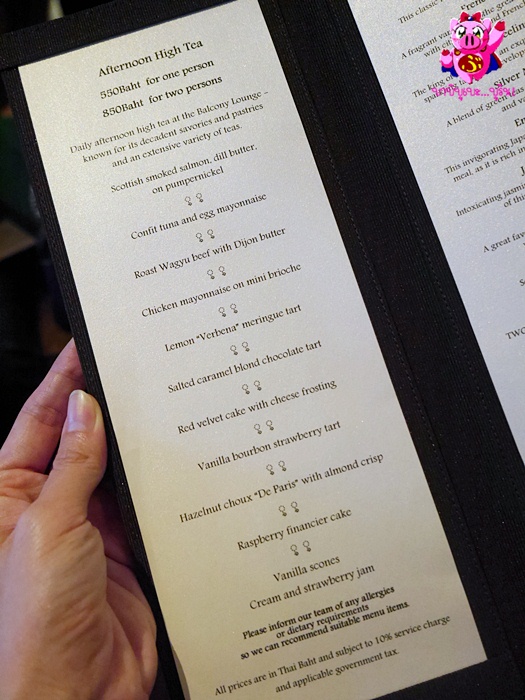 Afternoon High Tea
550Baht for one person
850Baht for two persons
Daily afternoon high tea at the Balcony Lounge –
known for its decadent savories and pastries
and an extensive variety of teas.
Scottish smoked salmon, dill butter,
on pumpernickel
Confit tuna and egg mayonnaise
Roast Wagyu beef with Dijon butter
Chicken mayonnaise on mini brioche
Lemon “Verbena” meringue tart
Salted caramel blond chocolate tart
Red velvet cake with cheese frosting
Vanilla bourbon strawberry tart
Hazelnut choux “De Paris” with almond crisp
Raspberry financier cake
Vanilla scones
Cream and strawberry jam
Please inform our team of any allergies
or dietary requirements
so we can recommend suitable menu items.
All prices are in Thai Baht and subject to 10% service charge
and applicable government tax.
This classic
A fragrant
with
The king
A blend of green
and
This invigorating
meal, as it is rich in
Intoxicating
of
A great
TWO